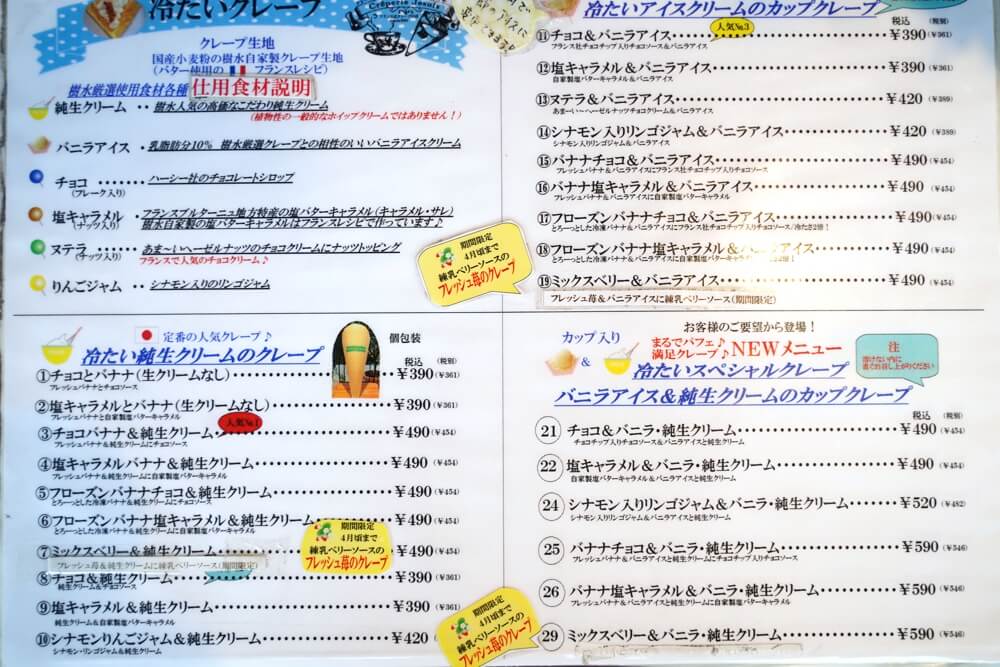 冷たいクレープ
クレープ生地
国産小麦粉の樹水自家製クレープ生地
(バター使用の フランスレシピ)
樹水厳選使用食材各種 仕用食材説明
純生クリーム ・・ 樹水人気の高価なこだわり純生クリーム
(植物性の一般的なホイップクリームではありません!)
バニラアイス ・ 乳脂肪分10% 樹水厳選クレープとの相性のいいバニラアイスクリーム
チョコ ・・・・・・ ハーシー社のチョコレートシロップ
(フレーク入り)
塩キャラメル ・ フランスブルターニュ地方特産の塩バターキャラメル(キャラメル・サレ)
(ナッツ入り) 樹水自家製の塩バターキャラメルはフランスレシピで作っています♪
ヌテラ ・・・・・・ あま〜いヘーゼルナッツのチョコクリームにナッツトッピング
(ナッツ入り) フランスで人気のチョコクリーム♪
りんごジャム ・・ シナモン入りのリンゴジャム
期間限定
4月頃まで
練乳ベリーソースの
フレッシュ苺のクレープ
冷たいアイスクリームのカップクレープ
税込 (税別)
人気No.3
⑪チョコ&バニラアイス ¥390 (¥361)
フランス社チョコチップ入りチョコソース&バニラアイス
⑫塩キャラメル&バニラアイス ¥390 (¥361)
自家製塩バターキャラメル&バニラアイス
⑬ヌテラ&バニラアイス ¥420 (¥389)
あま〜い〜ヘーゼルナッツチョコクリーム&バニラアイス
⑭シナモン入りリンゴジャム&バニラアイス ¥420 (¥389)
シナモン入りリンゴジャム&バニラアイス
⑮バナナチョコ&バニラアイス ¥490 (¥454)
フレッシュバナナ&バニラアイスにフランス社チョコチップ入りチョコソース
⑯バナナ塩キャラメル&バニラアイス ¥490 (¥454)
フレッシュバナナ&バニラアイスに自家製塩バターキャラメル
⑰フローズンバナナチョコ&バニラアイス ¥490 (¥454)
とろーっとした冷凍バナナ&バニラアイスにフランス社チョコチップ入りチョコソース/冷たさ2倍!
⑱フローズンバナナ塩キャラメル&バニラアイス ¥490 (¥454)
とろーっとした冷凍バナナ&バニラアイスに自家製塩バターキャラ
⑲ミックスベリー&バニラアイス ¥490 (¥454)
フレッシュ苺&バニラアイスに練乳ベリーソース(期間限定)
定番の人気クレープ♪
冷たい純生クリームのクレープ
個包装
税込 (税別)
①チョコとバナナ(生クリームなし) ¥390 (¥361)
フレッシュバナナとチョコソース
②塩キャラメルとバナナ(生クリームなし) ¥390 (¥361)
フレッシュバナナと自家製塩バターキャラメル
人気No.1
③チョコバナナ&純生クリーム ¥490 (¥454)
フレッシュバナナ&純生クリームにチョコソース
④塩キャラメルバナナ&純生クリーム ¥490 (¥454)
フレッシュバナナ&純生クリームに自家製塩バターキャラメル
⑤フローズンバナナチョコ&純生クリーム ¥490 (¥454)
とろーっとした冷凍バナナ&純生クリームにチョコソース
⑥フローズンバナナ塩キャラメル&純生クリーム ¥490 (¥454)
とろーっとした冷凍バナナ&純生クリームに自家製塩バターキャラメル
⑦ミックスベリー&純生クリーム ¥490 (¥454)
フレッシュ苺&純生クリームに練乳ベリーソース(期間限定)
期間限定
4月頃まで
練乳ベリーソースの
フレッシュ苺のクレープ
⑧チョコ&純生クリーム ¥390 (¥361)
純生クリーム&チョコソース
⑨塩キャラメル&純生クリーム ¥390 (¥361)
純生クリーム&自家製塩バターキャラメル
⑩シナモンりんごジャム&純生クリーム ¥420
シナモン・リンゴジャム&純生クリーム
期間限定
4月頃まで
練乳ベリーソースの
フレッシュ苺のクレープ
お客様のご要望から登場!
カップ入り まるでパフェ♪
& 満足クレープ♪NEWメニュー
冷たいスペシャルクレープ
バニラアイス&純生クリームのカップクレープ
注
溶けない内に
直ぐお召し上がりください
税込 (税別)
21 チョコ&バニラ・純生クリーム ¥490 (¥454)
チョコチップ入りチョコソース&バニラアイスと純生クリーム
22 塩キャラメル&バニラ・純生クリーム ¥490 (¥454)
自家製塩バターキャラメル&バニラアイスと純生クリーム
24 シナモン入りリンゴジャム&バニラ・純生クリーム ¥520 (¥482)
シナモン入りリンゴジャム&バニラアイスと純生クリーム
25 バナナチョコ&バニラ・純生クリーム ¥590 (¥546)
フレッシュバナナ&バニラアイスと純生クリームにチョコチップ入りチョコソース
26 バナナ塩キャラメル&バニラ・純生クリーム ¥590 (¥546)
フレッシュバナナ&バニラアイスと純生クリームに自家製塩バターキャラメル
29 ミックスベリー&バニラ・純生クリーム ¥590 (¥546)